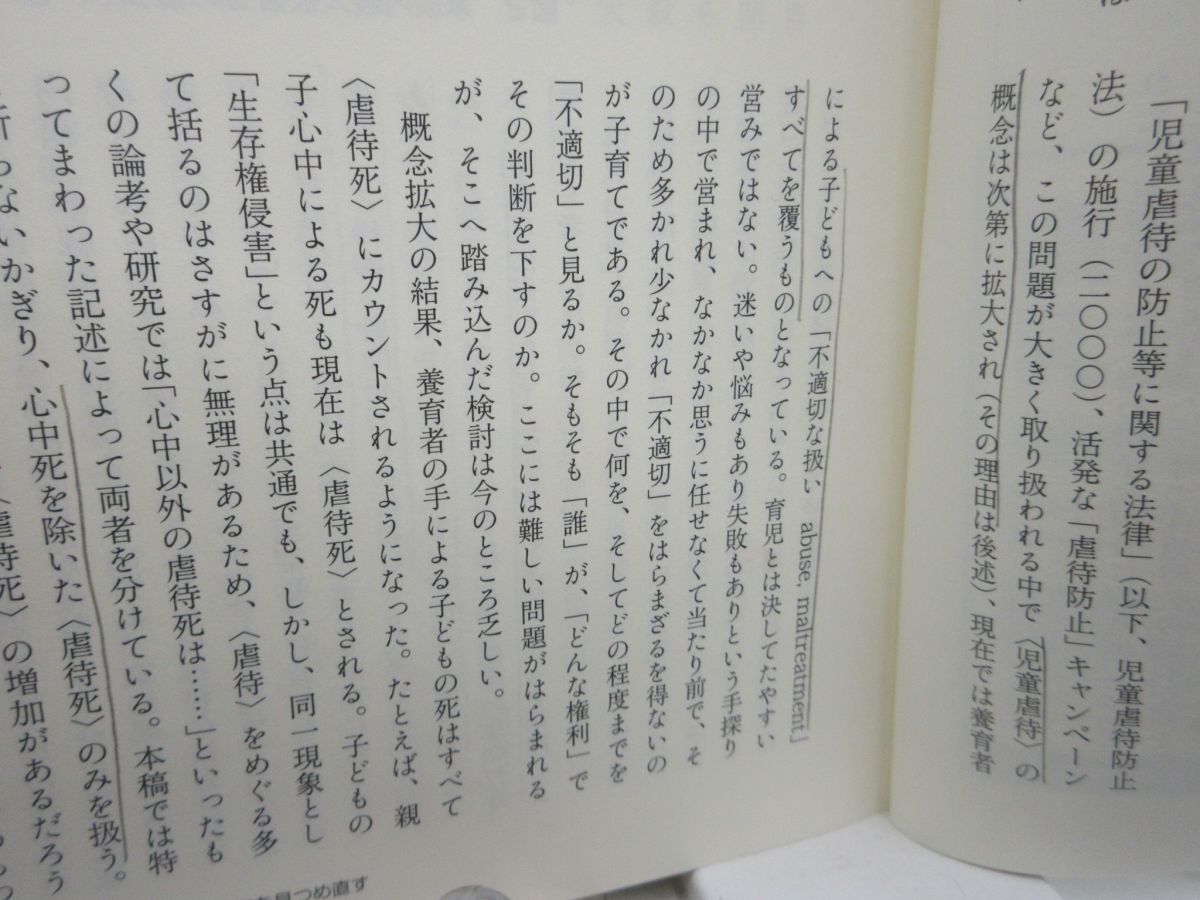 「児童虐待の防止等に関する法律」（以下、児童虐待防止
法）の施行（二〇〇〇）、活発な「虐待防止」キャンペーン
など、この問題が大きく取り扱われる中で〈児童虐待〉の
概念は次第に拡大され（その理由は後述）、現在では養育者
による子どもへの「不適切な扱い abuse, maltreatment」
すべてを覆うものとなっている。育児とは決してたやすい
営みではない。迷いや悩みもあり失敗もありという手探り
の中で営まれ、なかなか思うに任せなくて当たり前で、そ
のため多かれ少なかれ「不適切」をはらまざるを得ないの
が子育てである。その中で何を、そしてどの程度までを
「不適切」と見るか。そもそも「誰」が、「どんな権利」で
その判断を下すのか。ここには難しい問題がはらまれる
が、そこへ踏み込んだ検討は今のところ乏しい。
概念拡大の結果、養育者の手による子どもの死はすべて
〈虐待死〉にカウントされるようになった。たとえば、親
子心中による死も現在は〈虐待死〉とされる。子どもの
「生存権侵害」という点は共通でも、しかし、同一現象とし
て括るのはさすがに無理があるため、〈虐待〉をめぐる多
くの論考や研究では「心中以外の虐待死は……」といったも
ってまわった記述によって両者を分けている。本稿では特
に断らないかぎり、心中死を除いた〈虐待死〉のみを扱う。
〈虐待死〉の増加があるだろう
見つめ直す